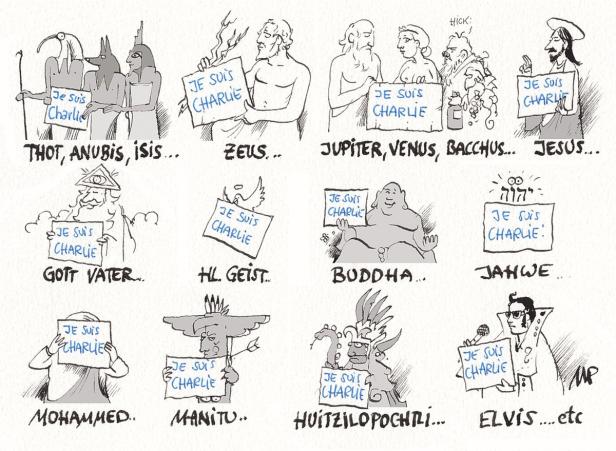 Je suis
Charlie
THOT, ANUBIS, ISIS...
JE SUIS
CHARLIE
ZEUS...
HICK!
JE SUIS
CHARLIE
JUPITER, VENUS, BACCHUS...
JE SUIS
CHARLIE
JESUS...
JE SUIS
CHARLIE
GOTT VATER..
JE SUIS
CHARLIE
HL. GEIST..
JE SUIS
CHARLIE
BUDDHA...
יהוה
JE SUIS
CHARLIE!
JAHWE...
JE SUIS
CHARLIE
MOHAMMED..
JE SUIS
CHARLIE
MANITU..
JE SUIS
CHARLIE
HUITZILOPOCHTLI...
JE SUIS
CHARLIE
ELVIS....etc